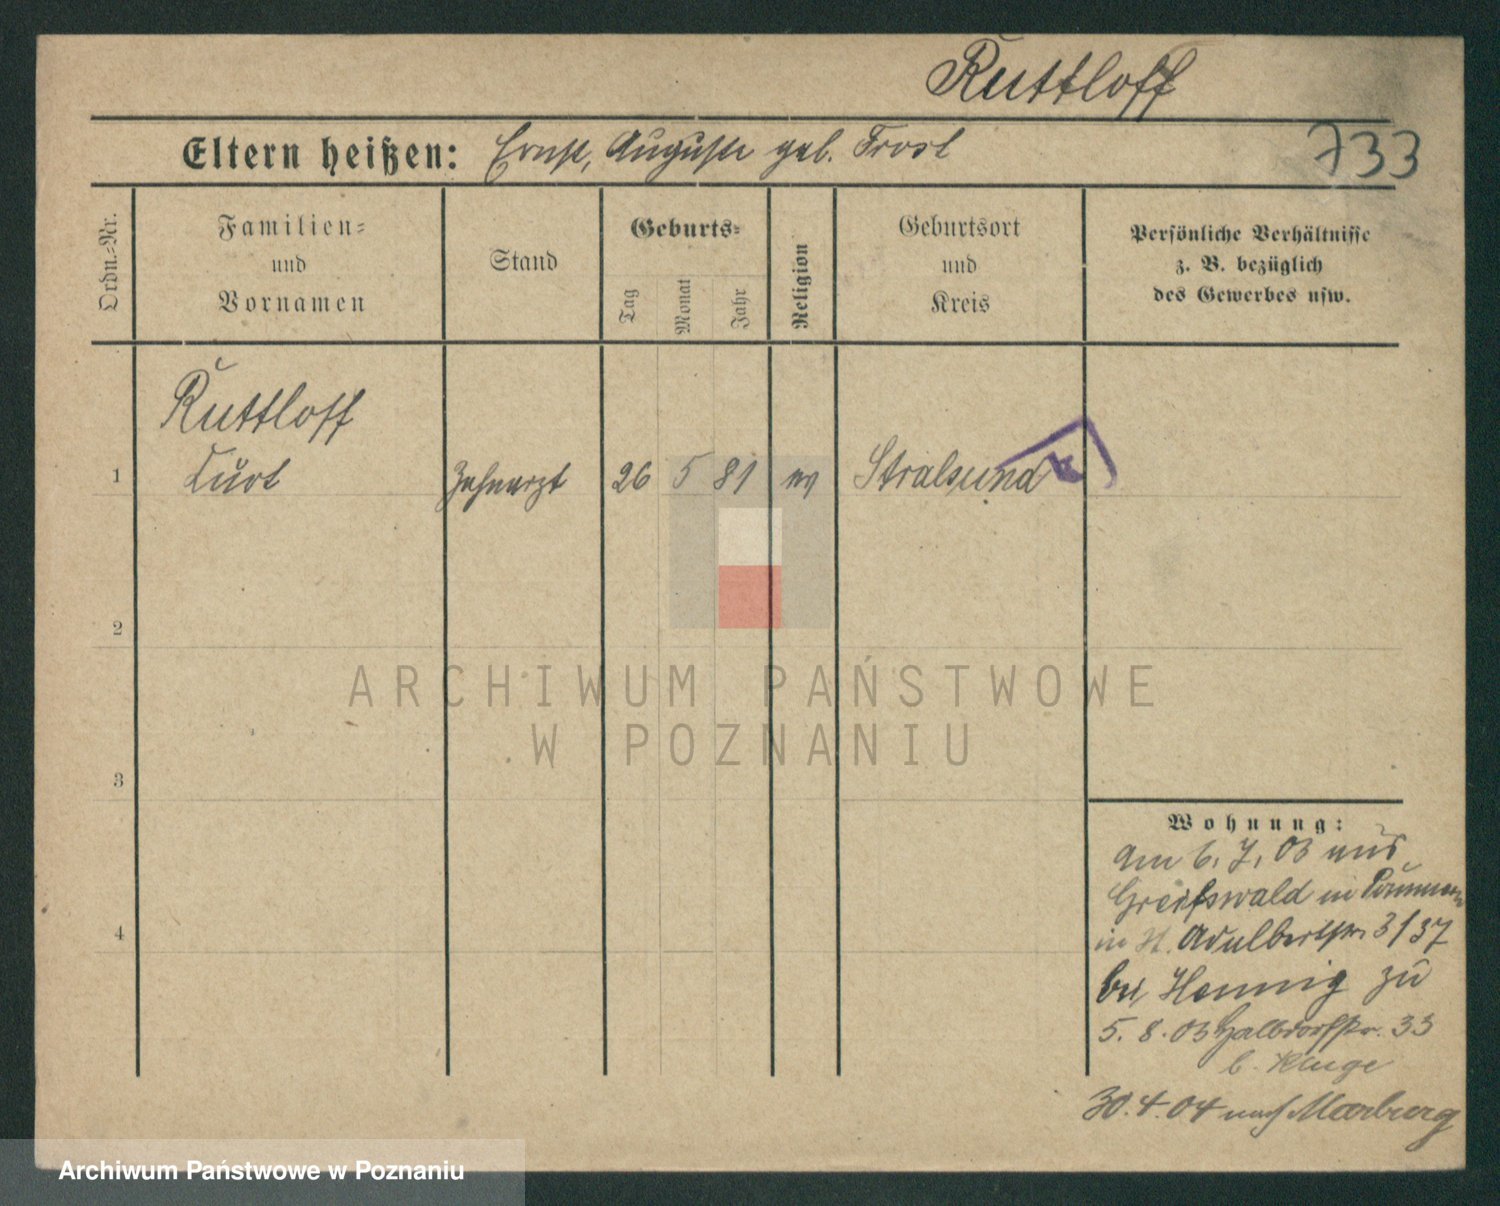 Ruttloff
Eltern heißen: Ernst, Auguste geb. Frost
733
Ordn.-Nr.
Familien-
und
Vornamen
Stand
Geburts-
Tag
Monat
Jahr
Religion
Geburtsort
und
Kreis
Persönliche Verhältnisse
z. B. bezüglich
des Gewerbes usw.
Ruttloff
1 Kurt Zahnarzt 26 5 81 ev Stralsund
2
3
4
ARCHIWUM PAŃSTWOWE
W POZNANIU
Wohnung:
am 6. 7. 03 aus
Greifswald in Pommern
in St. Adalbertstr. 3/37
bei Hennig zu
5. 8. 03 Halbdorfstr. 33
b. Kluge
30.4.04 nach Marburg
Archiwum Państwowe w Poznaniu